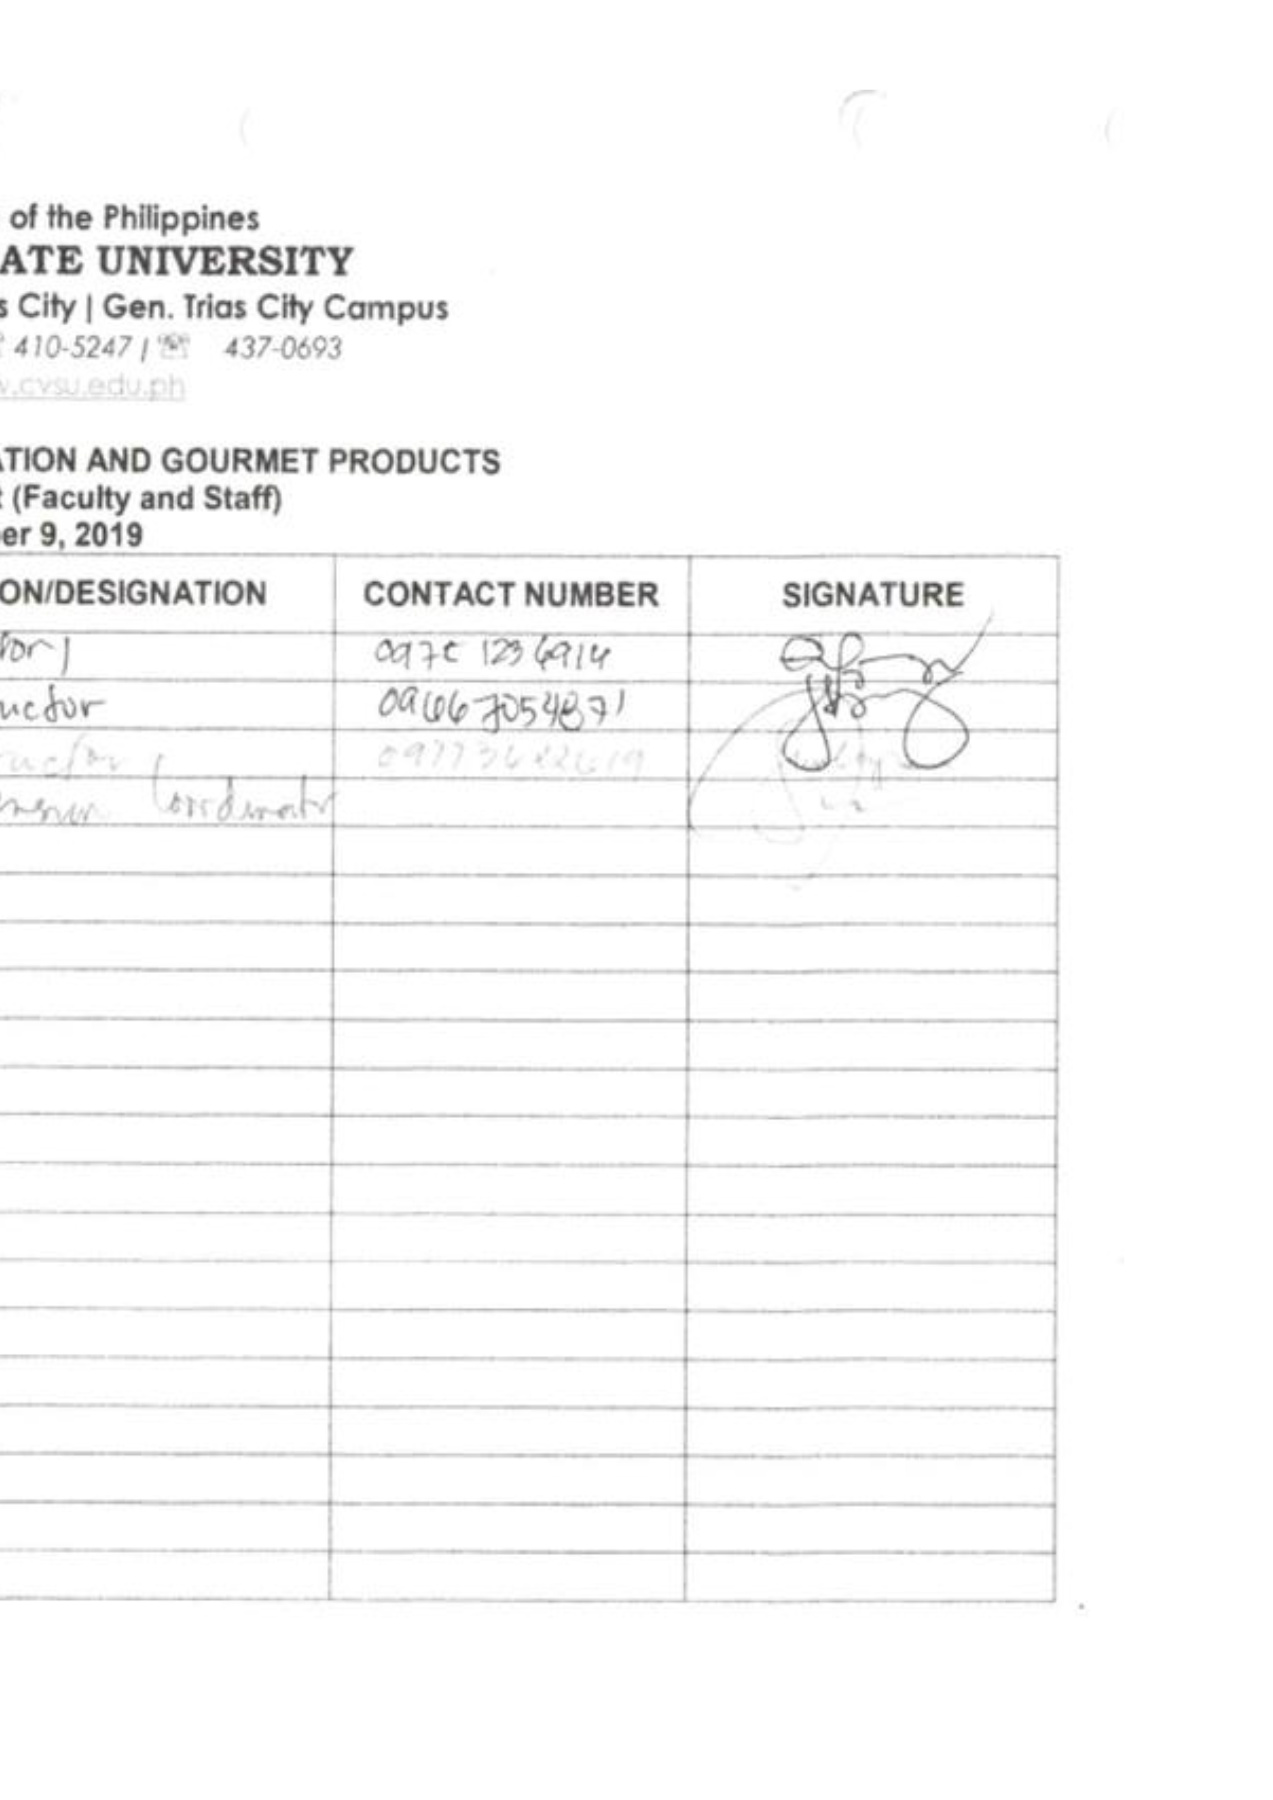 of the Philippines
ATE UNIVERSITY
s City | Gen. Trias City Campus
410-5247 | 437-0693
w.cvsu.edu.ph
TION AND GOURMET PRODUCTS
t (Faculty and Staff)
er 9, 2019
ON/DESIGNATION CONTACT NUMBER SIGNATURE
tor 1
uctor 09667054871
uctor
Coordinator